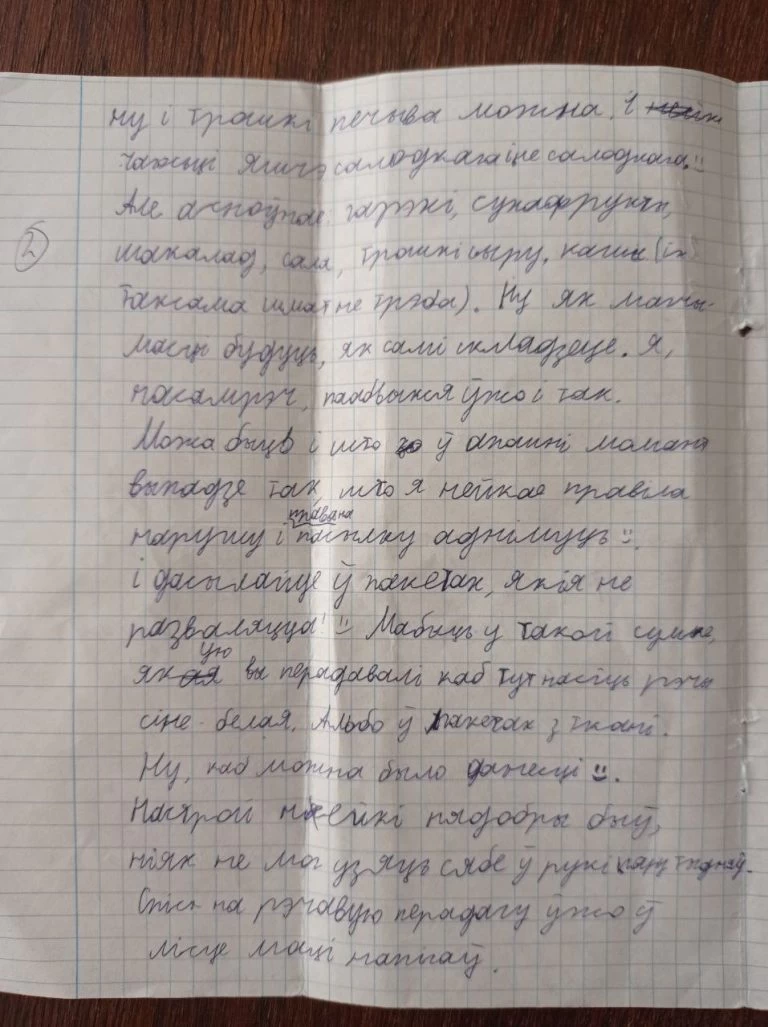 ну і трошкі печыва можна. І
часьці салодкага і не салодкага. :)
Але асноўнае гарэхі, сухафрукты,
2
шакалад, сала, трошкі сыру, кашы (іх
таксама шмат не трэба). Ну як магчы-
масць будуць, як самі складзеце. Я,
насамрэч, паабвыкся ўжо і так.
Можа быць і што ў апошні момант
выпадзе так, што я нейкае правіла
нарушу і пасылку аднімуць :).
і дасылайце ў пакетах, якія не
разваляцца! :) Мабыць у такой сумцы,
якую вы перадавалі каб тут насіць рэчы
сіне-белая. Альбо ў пакетах з ткані.
Ну, каб можна было данесці :).
Настрой нейкі нядобры быў,
ніяк не мог узяць сябе ў рукі пару тыдняў.
Спіс на рэчавую перадачу ўжо ў
лісце маці напісаў.